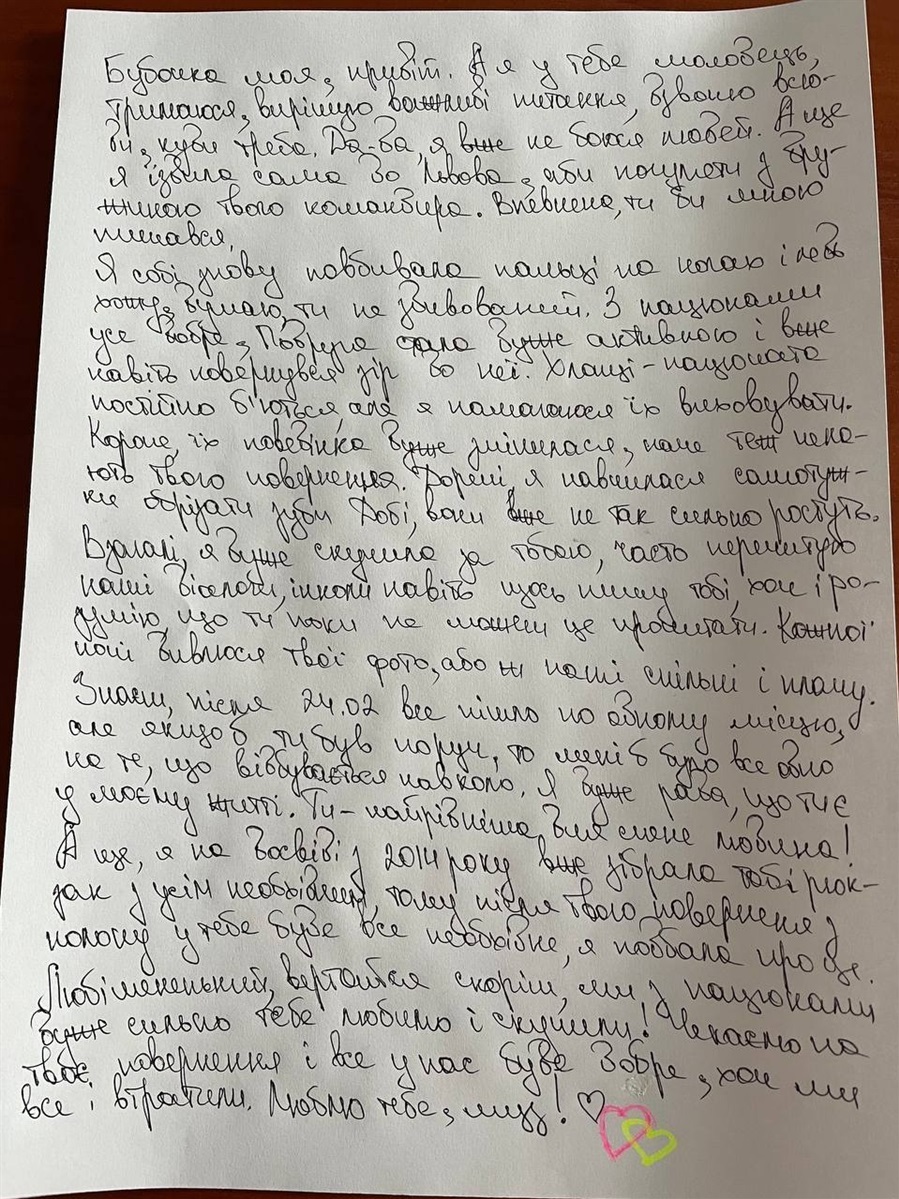 Бубочка моя, привіт. А я у тебе молодець,
тримаюся, вирішую важливі питання, дзвоню всю-
ди, куди треба. Да-да, я вже не боюся людей. А ще
я їздила сама до Львова, аби пошуміти з дру-
жиною твого командира. Впевнена, ти би мною
пишався.
Я собі знову повбивала пальці на ногах і ледь
ходжу, думаю, ти не здивований. З пацюками
усе добре, Подруга стала дуже активною і вже
навіть повернувся зір до неї. Хлопці-пацючата
постійно б'ються, але я намагаюся їх виховувати.
Коротше, їх поведінка дуже змінилася, наче теж чека-
ють твого повернення. До речі, я навчилася самотуж-
ки обрізати зуби Добі, вони вже не так сильно ростуть.
Взагалі, я дуже скучила за тобою, часто перечитую
наші діалоги, інколи навіть щось пишу тобі, хоч і ро-
зумію, що ти поки не можеш це прочитати. Кожної
ночі дивлюся твої фото, або ж наші спільні і плачу.
Знаєш, після 24.02 все пішло по одному місцю,
але якщо б ти був поруч, то мені б було все одно
на те, що відбувається навколо. Я дуже рада, що ти є
у моєму житті. Ти - найрідніша для мене людина!
А ще, я на досвіді з 2014 року вже зібрала тобі рюк-
зак з усім необхідним, тому після твого повернення з
полону у тебе буде все необхідне, я подбала про це.
Любімененький, вертайся скоріш, ми з пацюками
дуже сильно тебе любимо і скучили! Чекаємо на
твоє повернення і все у нас буде добре, хоч ми
все і втратили. Люблю тебе, муз!